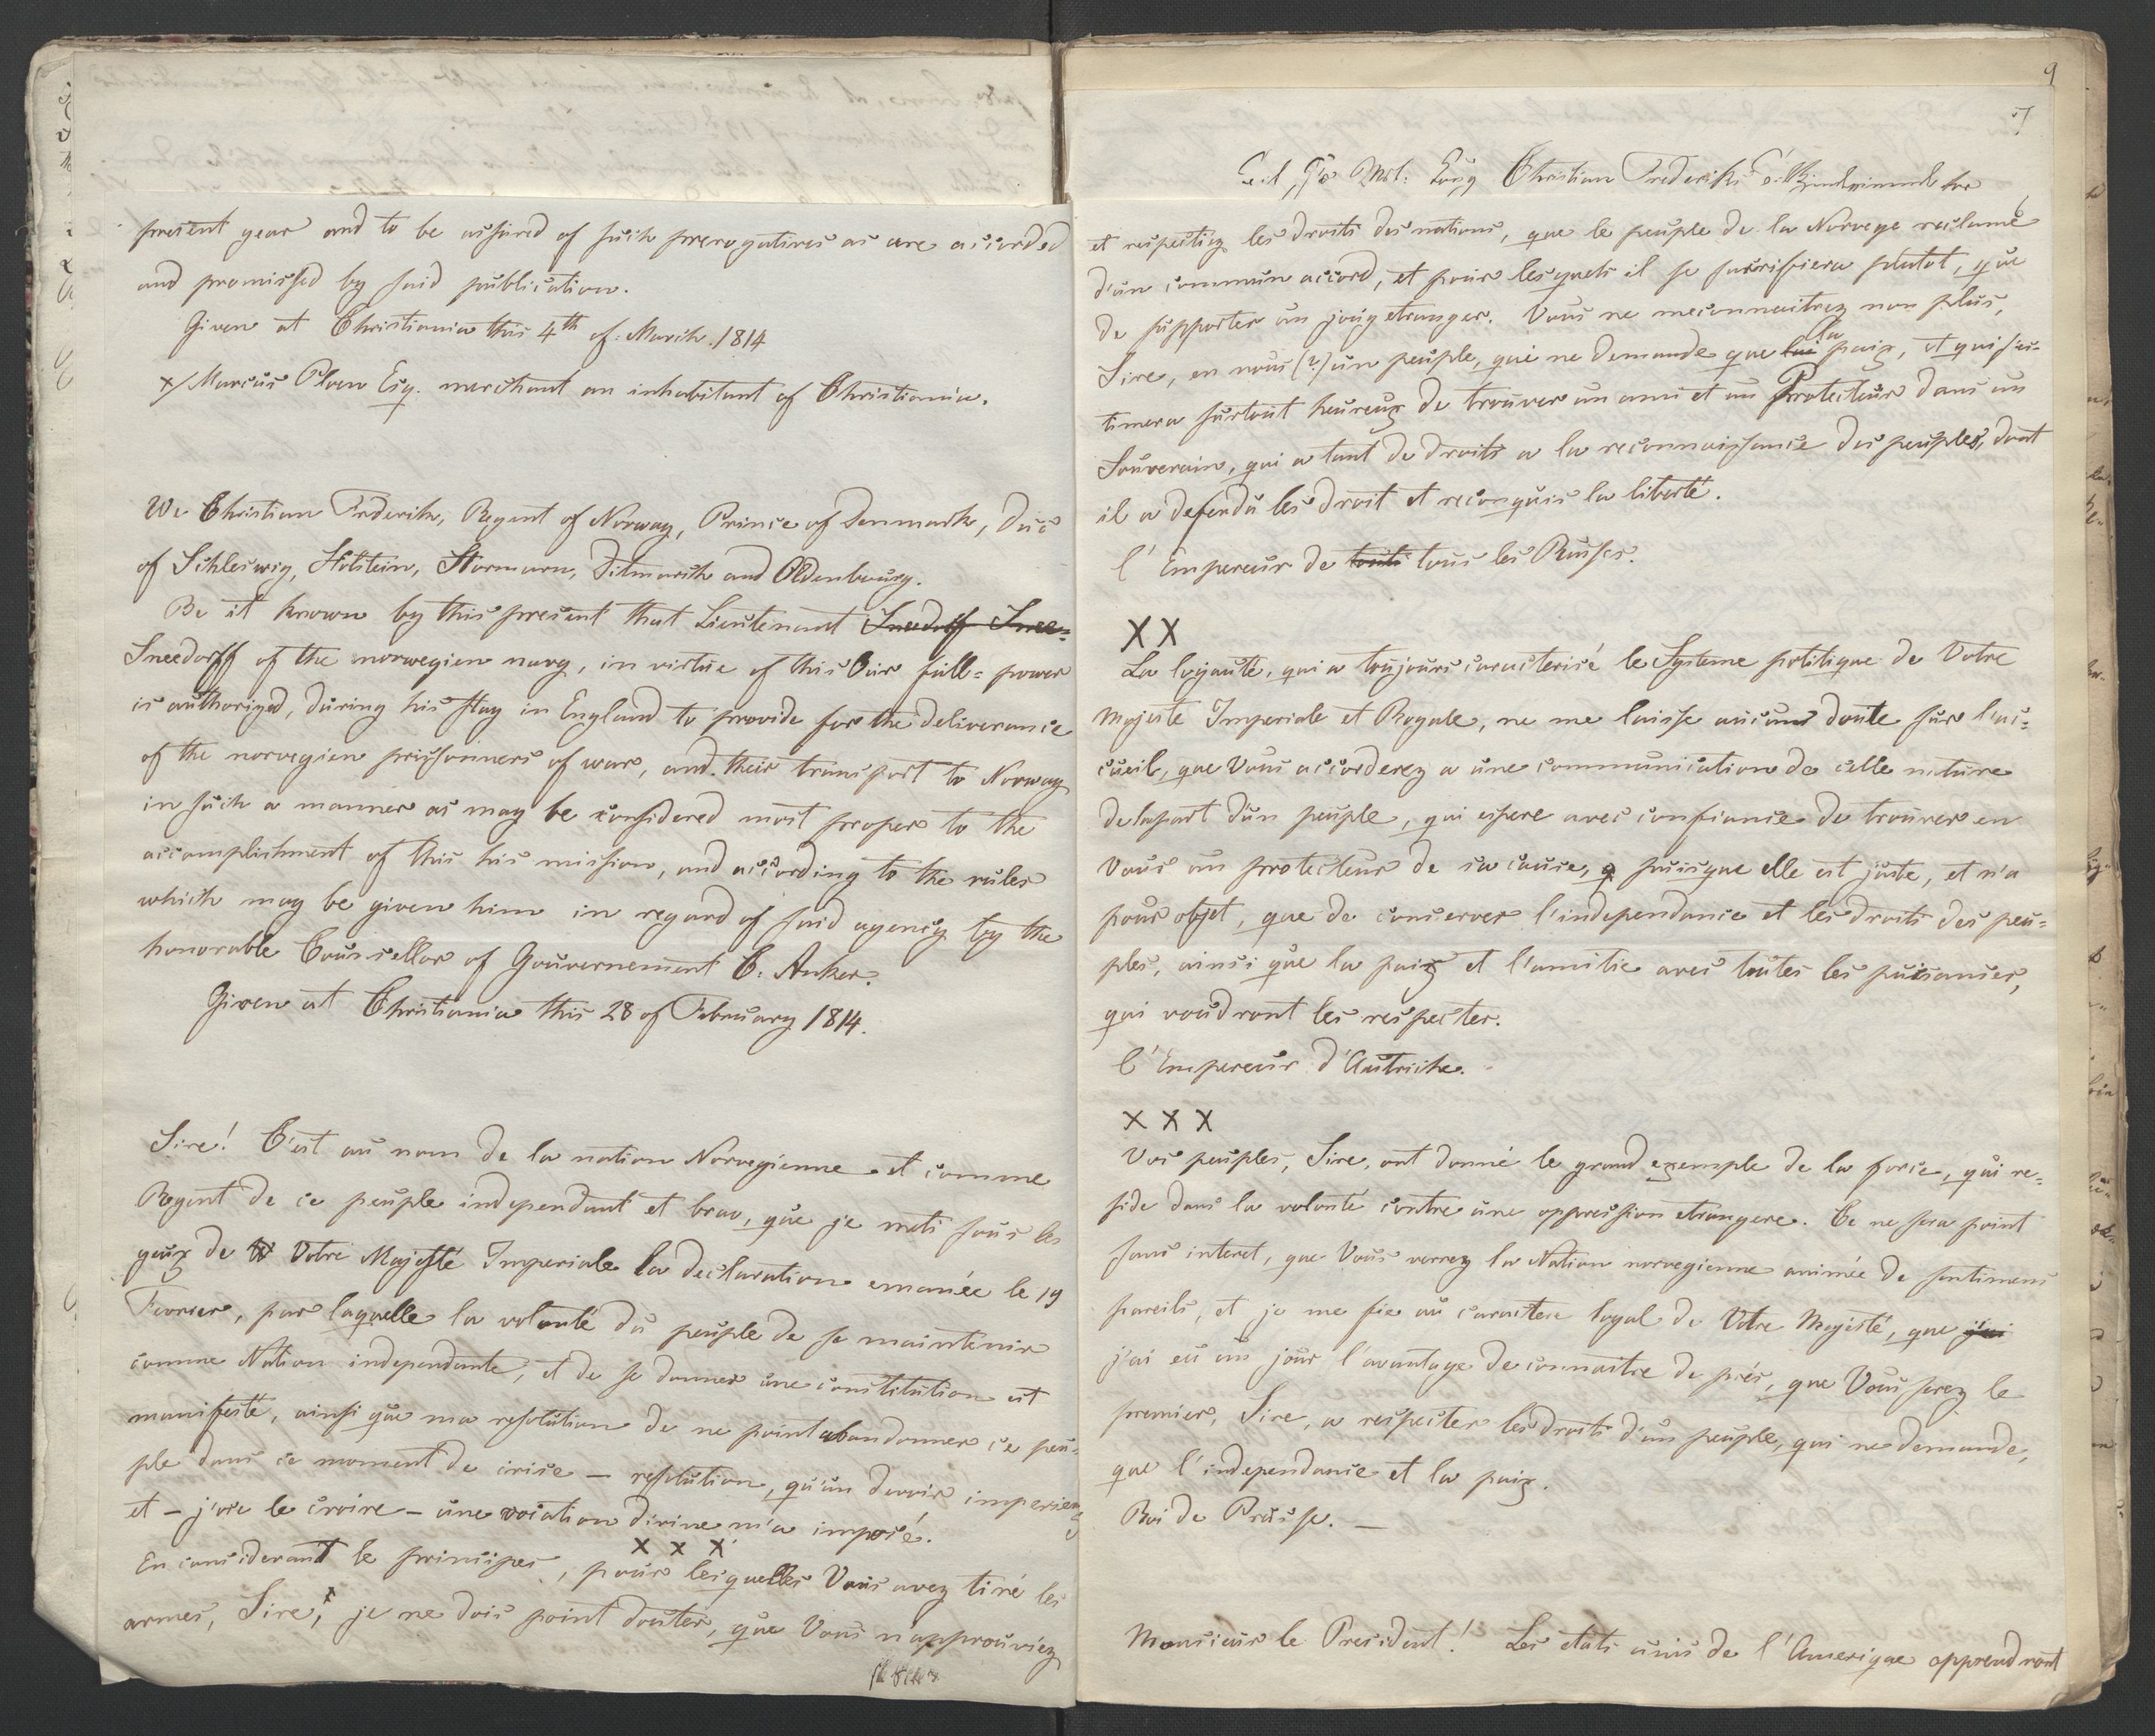 present year and to be assured of such prerogatives as are accorded
and promissed by said publication.
Given at Christiania this 4th of March. 1814
x/ Marcus Ploen Esq. merchant an inhabitant of Christiania.
We Christian Frderik, Regent of Norway, Prince of Denmark, Duc
of Schleswig, Holstein, Stormarn, Ditmarsk and Oldenbourg.
Be it known by this present that Lieutenant Sneedorff Snee=
Sneedorff of the norwegien navy, in virtue of this Our full=power
is authorized, during his stay in England to provide for the deliverance
of the norvegien prissoniners of war, and their transport to Norway
in such a manner as may be considered most proper to the
accomplishment of this his mission, and according to the rules
which may be given him in regard of said agency by the
honorable Counsellor of Gouvernement C. Anker.
Given at Christiania this 28 of February 1814.
Sire! C'est au nom de la nation Norvegienne et comme
Regent de ce peuple independant et brav, que je mets sous les
yeux de Votre Majesté Imperiale la declaration emanée le 19
Fevrier, par laquelle la volonté du peuple de se maintenir
comme Nation independante, et de se donner une constitution est
manifesté, ainsi que ma resolution de ne point abandonner ce peu=
ple dans ce moment de crise — resolution, qu'un devoir imperieux
et — j'ose le croire — une vocation divine m'a imposé.
x x x
En considerant le principes, pour lesquelles Vous avez tiré les
armes, Sire, je ne dois point douter, que Vous n'approuviez
9
7
Christian Frederiks
6
et respectiez les droits des nations, que le peuple de la Norvege reclame
d'un commun accord, et pour lesquels il se sacrifiera plutot, que
de supporter un joug etranger. Vous ne meconnaitrez non plus,
Sire, en nous (?) un peuple, qui ne demande que la paix, et qui s'es-
timera surtout heureux de trouver un ami et un Protecteur dans un
Souverain, qui a tant de droits a la reconnaissance des peuples, dont
il a defendu les droit et reconquis la liberté.
l'Empereur de touts tous les Russes.
XX
La loyauté, qui a toujours caracterisé le Systeme politique de Votre
Majesté Imperiale et Royale, ne me laisse aucun doute sur l'ac=
cueil, que Vous accorderez a une communication de celle nature
de la part d'un peuple, qui espere avec confiance de trouver en
Vous un protecteur de sa cause, puisque elle est juste, et n'a
pour objet, que de conserver l'independance et les droits des peu=
ples, ainsi que la paix et l'amitie avec toutes les puissances,
qui voudront les respecter.
l'Empereur d'Autriche.
x x x
Vos peuples, Sire, ont donné le grand exemple de la force, qui re=
side dans la volonté contre une oppression etrangere. Ce ne sera point
sans interet, que Vous verrez la Nation norvegienne animée de sentimens
pareils, et je me fie au caractere loyal de Votre Majesté, que j'ai
j'ai eu un jour l'avantage de connaitre de près, que Vous serez le
premier, Sire, a respecter les droits d'un peuple, qui ne demande,
que l'independance et la paix.
Roi de Prusse. —
Monsieur le President! Les etats unis de l'Amerique apprendront